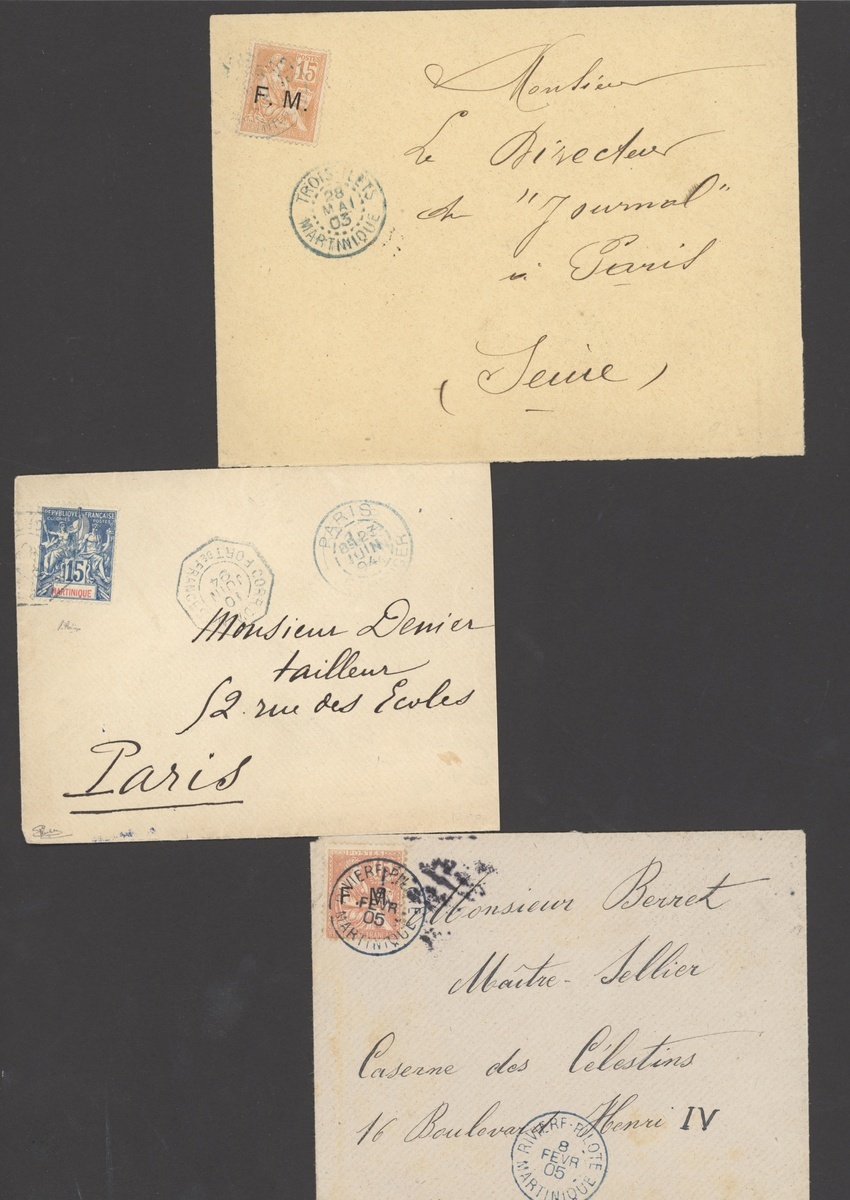 POSTES
15
F. M.
TROIS-ILETS
28
MAI
03
MARTINIQUE
Monsieur
Le Directeur
du "Journal"
à Paris
(Seine)
REPUBLIQUE FRANÇAISE
COLONIES POSTES
15
MARTINIQUE
CORR. FORT DE FRANCE
10
JUIN
04
PARIS
JUIN
04
Monsieur Denier
tailleur
52 rue des Ecoles
Paris
F. M.
RIVIERE-PILOTE
FEVR
05
MARTINIQUE
Monsieur Berret
Maître-Sellier
Caserne des Célestins
16 Boulevard Henri IV
RIVIERE-PILOTE
8
FEVR
05
MARTINIQUE